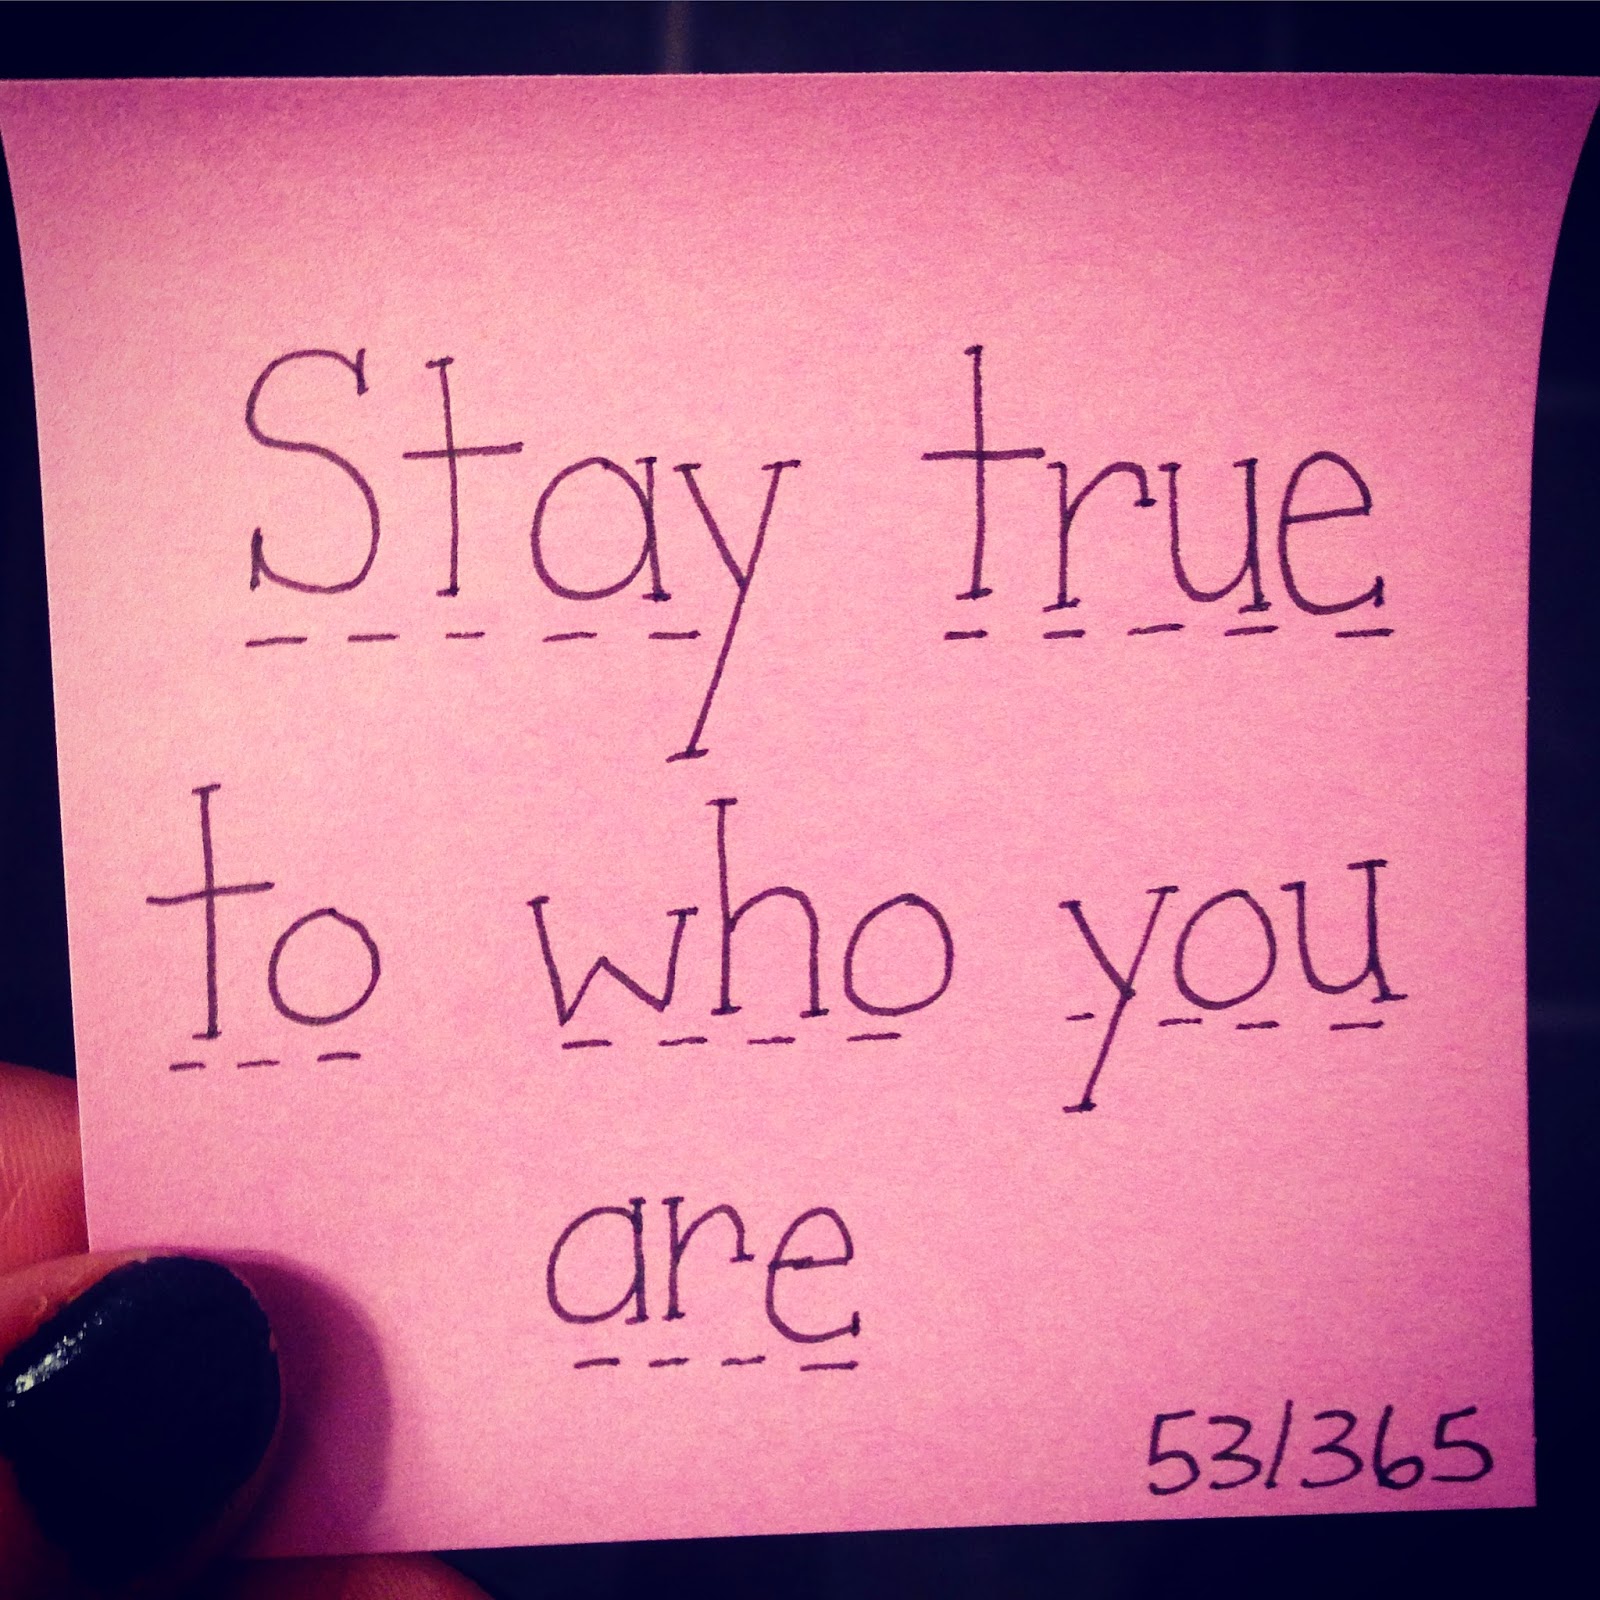 Stay true
to who you
are
53/365